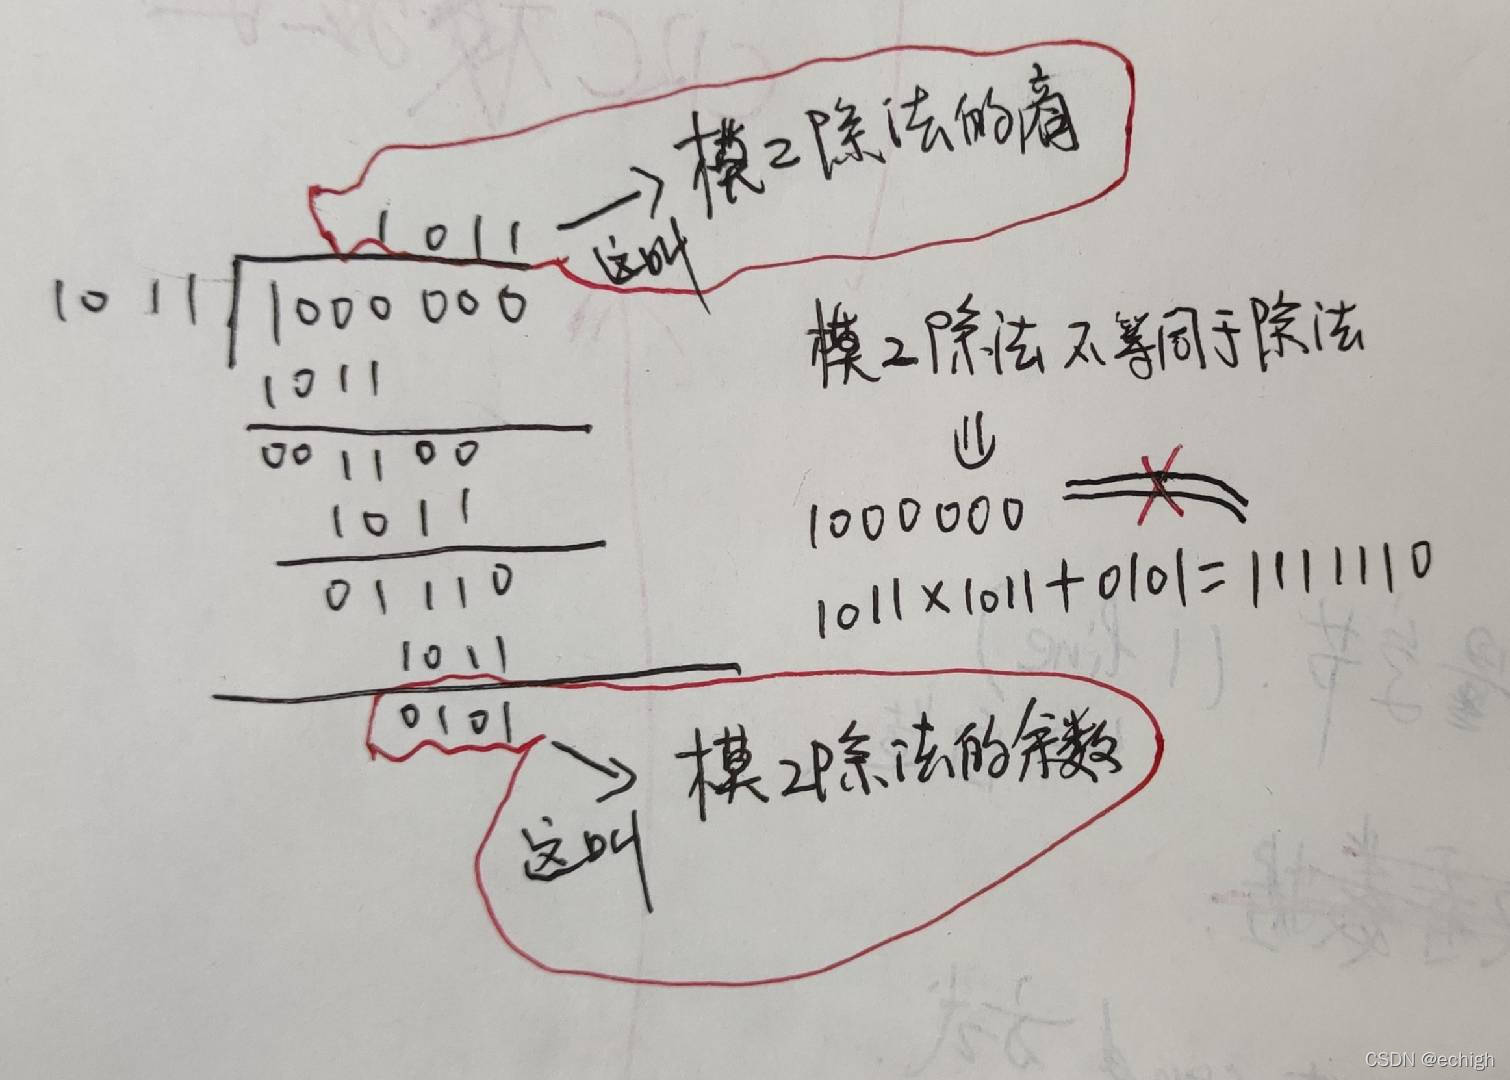 1011 → 模2除法的商
这叫
1011 1000000
1011
001100
1011
01110
1011
0101
这叫
模2除法的余数
模2除法不等同于除法
⇓
1000000
1011×1011+0101=1111110
CSDN @echigh